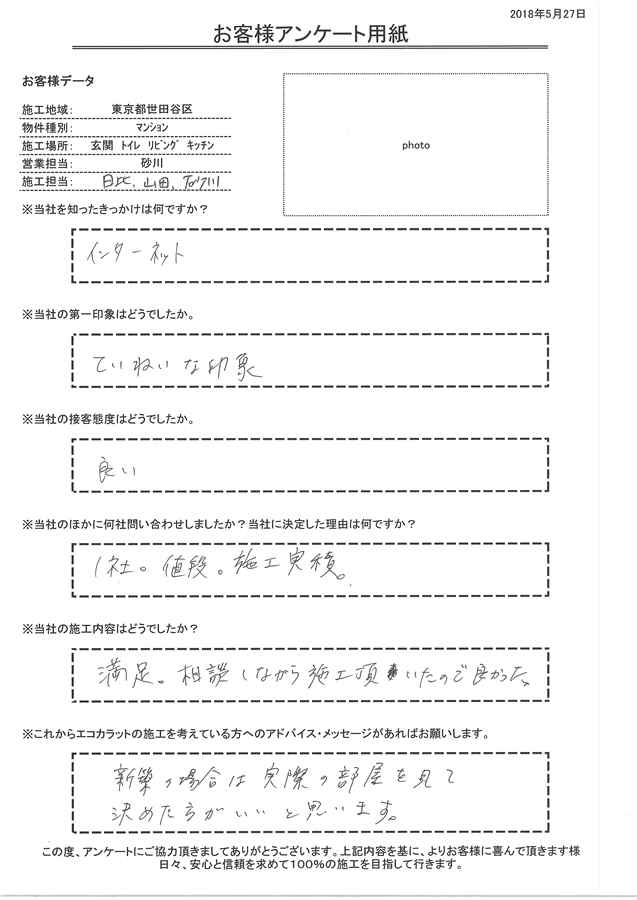 2018年5月27日
お客様アンケート用紙
お客様データ
施工地域: 東京都世田谷区
物件種別: ﾏﾝｼｮﾝ
施工場所: 玄関 ﾄｲﾚ ﾘﾋﾞﾝｸﾞ ｷｯﾁﾝ
営業担当: 砂川
施工担当: 日比、山田、砂川
photo
※当社を知ったきっかけは何ですか？
インターネット
※当社の第一印象はどうでしたか。
ていねいな印象
※当社の接客態度はどうでしたか。
良い
※当社のほかに何社問い合わせしましたか？当社に決定した理由は何ですか？
1社。値段。施工実積。
※当社の施工内容はどうでしたか？
満足。相談しながら施工頂いたので良かった。
※これからエコカラットの施工を考えている方へのアドバイス・メッセージがあればお願いします。
新築の場合は実際の部屋を見て
決めた方がいいと思います。
この度、アンケートにご協力頂きましてありがとうございます。上記内容を基に、よりお客様に喜んで頂きます様
日々、安心と信頼を求めて100%の施工を目指して行きます。